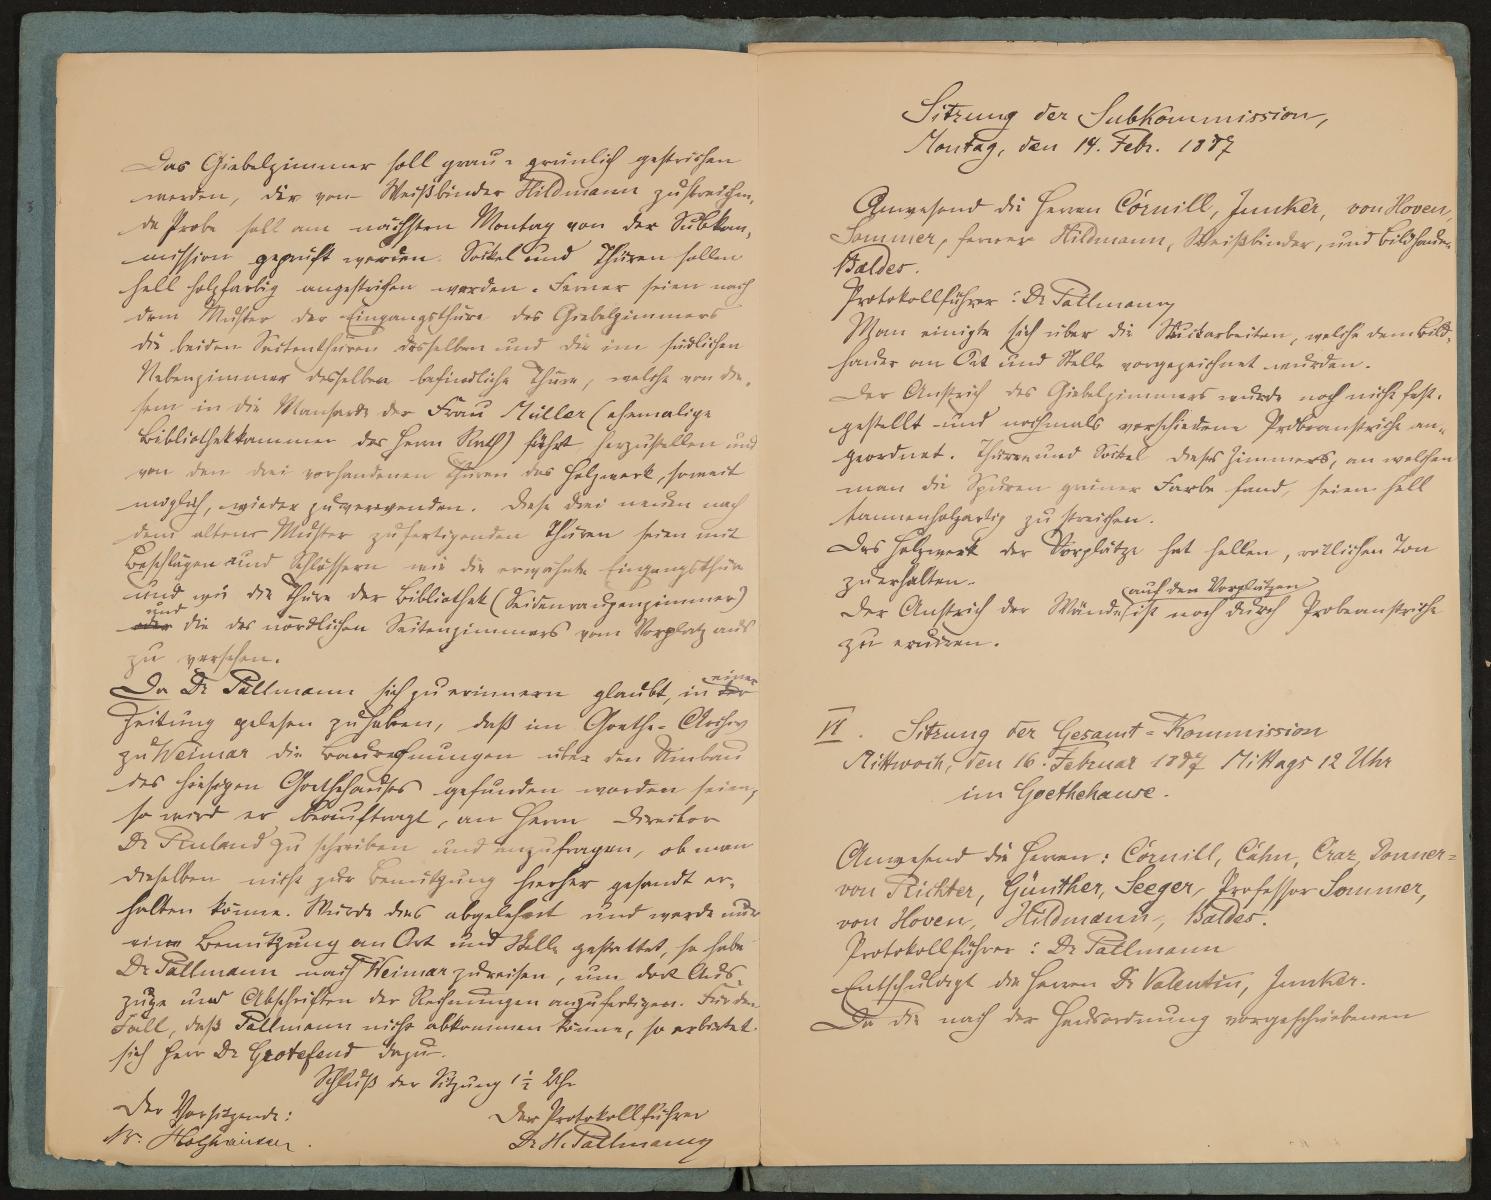 Das Giebelzimmer soll grau-grünlich gestrichen
werden, die von Weißbinder Hildmann zu streichen-
de Probe soll am nächsten Montag von der Subkom-
mission geprüft werden. Sockel und Thüren sollen
hell holzfarbig angestrichen werden. Ferner seien nach
dem Muster der Eingangsthüre des Giebelzimmers
die beiden Seitenthüren desselben und die im südlichen
Nebenzimmer desselben befindliche Thüre, welche von die-
sem in die Mansarde der Frau Müller (ehemalige
Bibliothekkammer des Herrn Rath) führt herzustellen und
von den drei vorhandenen Thüren das Holzwerk, soweit
möglich, wieder zu verwenden. Diese drei neuen nach
dem alten Muster zu fertigenden Thüren seien mit
Beschlägen und Schlössern wie die erwähnte Eingangsthüre
und wie die Thüre der Bibliothek (Seidenraupenzimmer)
und
oder die des nördlichen Seitenzimmers vom Vorplatz aus
zu versehen.
Da Dr Pallmann sich zu erinnern glaubt, in einer
Zeitung gelesen zu haben, daß im Goethe-Archiv
zu Weimar die Baurechnungen über den Umbau
des hiesigen Goethehauses gefunden worden seien,
so wird er beauftragt, an Herrn Director
Dr Ruland zu schreiben und anzufragen, ob man
dieselben nicht zur Benutzung hierher gesandt er-
halten könne. Würde dies abgelehnt und werde nur
eine Benutzung an Ort und Stelle gestattet, so habe
Dr Pallmann nach Weimar zu reisen, um dort Aus-
züge und Abschriften der Rechnungen anzufertigen. Für den
Fall, daß Pallmann nicht abkommen könne, so erbietet
sich Herr Dr Grotefend dazu.
Schluß der Sitzung 1½ Uhr
Der Vorsitzende: Der Protokollführer
Holzhausen. Dr H. Pallmann
Sitzung der Subkommission,
Montag, den 14. Febr. 1887
Anwesend die Herren Cornill, Junker, von Hoven,
Sommer, ferner Hildmann, Weißbinder, und Bildhauer
Baldes.
Protokollführer: Dr Pallmann
Man einigte sich über die Stuckarbeiten, welche dem Bild-
hauer an Ort und Stelle vorgezeichnet wurden.
Der Anstrich des Giebelzimmers wurde noch nicht fest-
gestellt und nochmals verschiedene Probeanstriche an-
geordnet. Thüren und Sockel dieses Zimmers, an welchen
man die Spuren grüner Farbe fand, seien hell
tannenholzartig zu streichen.
Das Holzwerk der Vorplätze hat hellen, rötlichen Ton
zu erhalten.
(auf den Vorplätzen)
Der Anstrich der Wände ist noch durch Probeanstriche
zu eruiren.
VI. Sitzung der Gesamt-Kommission
Mittwoch, den 16. Februar 1887 Mittags 12 Uhr
im Goethehause.
Anwesend die Herren: Cornill, Cahn, Donner-
von Richter, Günther, Seeger, Professor Sommer,
von Hoven, Hildmann, Baldes.
Protokollführer: Dr Pallmann
Entschuldigt die Herren Dr Valentin, Junker.
Da die nach der Hausordnung vorgeschriebenen